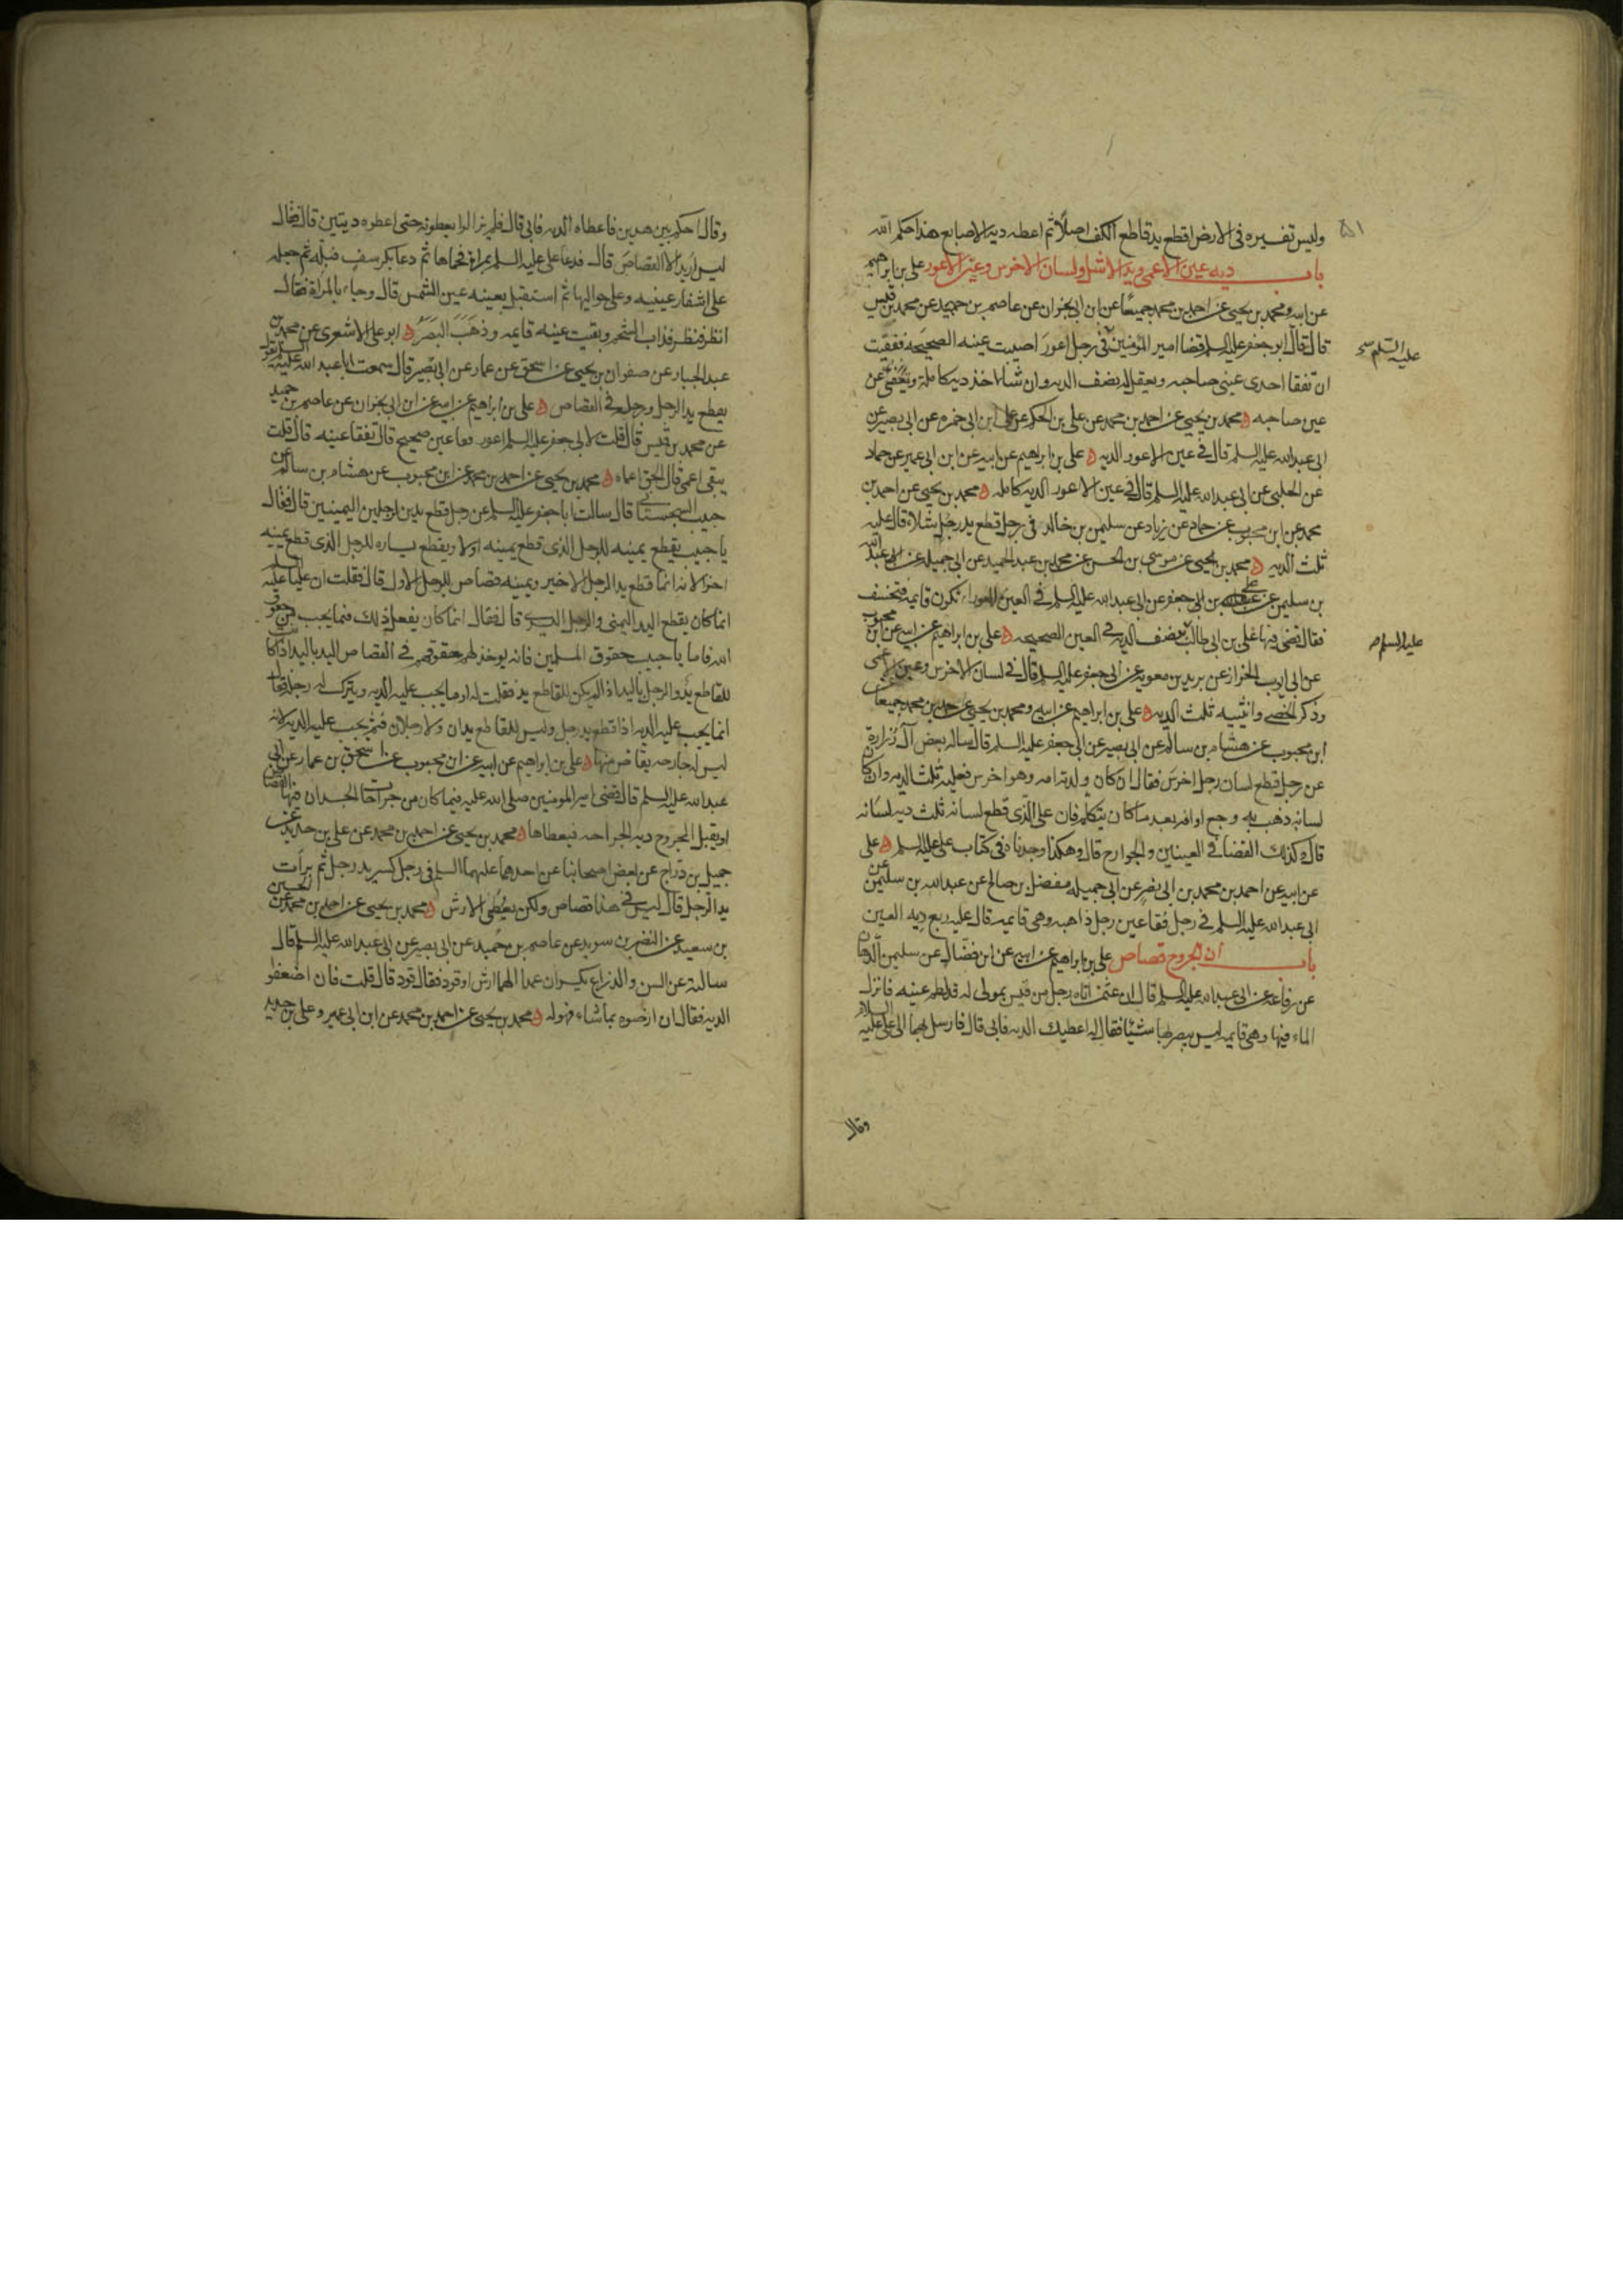 وليس تفسيره في الارض اقطع يد قاطع الكف اصلا ثم اعطه دية الاصابع هذا حكم الله
باب دية عين الاعمى ويد الاشل ولسان الاخرس وعين الاعور علي بن ابراهيم
عن ابيه ومحمد بن يحيى عن احمد بن محمد جميعًا عن ابن ابي نجران عن عاصم بن حميد عن محمد بن قيس
قال قال ابو جعفر عليه السلم قضا امير المؤمنين في رجل اعور اصيبت عينه الصحيحة ففقئت
عليه السلم
ان تفقا احدى عيني صاحبه ويعقل له نصف الدية وان شاء اخذ دية كاملة ويعفى عن
عين صاحبه محمد بن يحيى عن احمد بن محمد عن علي بن الحكم عن علي ابن ابي حمزه عن ابي بصير عن
ابي عبد الله عليه السلم قال في عين الاعور الدية علي بن ابراهيم عن ابيه عن ابن ابي عمير عن حماد
عن الحلبي عن ابي عبد الله عليه السلم قال في عين الاعور الدية كامله محمد بن يحيى عن احمد بن
محمد عن ابن محبوب عن حماد عن زياد عن سليمن بن خالد في رجل قطع يد رجل شلاء قال عليه
ثلث الدية محمد بن يحيى عن موسى بن الحسن عن محمد بن عبد الحميد عن ابي جميله عن ابي عبد الله
بن سليمن عن بن ابي جعفر عن ابي عبد الله عليه السلم في العين العوراء تكون قايمة فتخسف
فقال قضى فيها علي بن ابي طالب نصف الدية في العين الصحيحه علي بن ابراهيم عن ابيه عن ابن محبوب
عليه السلم
عن ابي ايوب الخزاز عن بريد بن معوية عن ابي جعفر عليه السلم قال في لسان الاخرس وعين الاعمى
وذكر الخصي وانثييه ثلث الدية علي بن ابراهيم عن ابيه ومحمد بن يحيى عن احمد بن محمد جميعا عن
ابن محبوب عن هشام بن سالم عن ابي بصير عن ابي جعفر عليه السلم قال ساله بعض آل زرارة
عن رجل قطع لسان رجل اخرس فقال ان كان ولدته امه وهو اخرس فعليه ثلث الدية وان كان
لسانه ذهب به وجع او افه بعد ما كان يتكلم فان على الذي قطع لسانه ثلث دية لسانه
قال وكذلك القضا في العينين والجوارح قال وهكذا وجدناه في كتاب علي عليه السلم علي
عن ابيه عن احمد بن محمد بن ابي نصر عن ابي جميله مفضل بن صالح عن عبد الله بن سليمن عن
ابي عبد الله عليه السلم في رجل فقا عين رجل ذاهبه وهي قايمة قال عليه ربع دية العين
باب ان الجروح قصاص علي بن ابراهيم عن ابيه عن ابن فضال عن سليمن الدهان
عن رفاعة عن ابي عبد الله عليه السلم قال ان عثمن اتاه رجل من قيس بمولى له قد لطم عينه فانزل
الماء فيها وهي قايمة ليس يبصر بها شيئا فقال له اعطيك الدية فابى قال فارسل بهما الى علي عليه السلام
وقال
وقال احكم بين هذين فاعطاه الدية فابى قال فلم يزالوا يعطونه حتى اعطوه ديتين قال فقال
ليس اريد الا القصاص قال فدعا علي عليه السلم بمراة فحماها ثم دعا بكرسف فبله ثم جعله
على اشفار عينيه وعلى حواليها ثم استقبل بعينه عين الشمس قال وجاء بالمراة فقال
انظر فنظر فذاب الشحم وبقيت عينه قايمه وذهب البصر ابو علي الاشعري عن محمد بن
عبد الجبار عن صفوان بن يحيى عن اسحق عن عمار عن ابي بصير قال سمعت ابا عبد الله عليه السلم يقول
يقطع يد الرجل ورجله في القصاص علي بن ابراهيم عن ابيه عن ابن ابي نجران عن عاصم بن حميد
عن محمد بن قيس قال قلت لابي جعفر عليه السلم اعور فقا عين صحيح قال تفقا عينه قال قلت
يبقى اعمى قال الحق اعماه محمد بن يحيى عن احمد بن محمد عن ابن محبوب عن هشام بن سالم عن
حبيب السجستاني قال سالت ابا جعفر عليه السلم عن رجل قطع يدين لرجلين اليمينين قال فقال
يا حبيب يقطع يمينه للرجل الذي قطع يمينه اولا ويقطع يساره للرجل الذي قطع يمينه
اخرا لانه انما قطع يد الرجل الاخير ويمينه قصاص للرجل الاول قال فقلت ان عليا عليه السلم
انما كان يقطع اليد اليمنى والرجل اليسرى قال فقال انما كان يفعل ذلك فيما يجب من حقوق
الله فاما يا حبيب حقوق المسلمين فانه يوخذ لهم حقوقهم في القصاص اليد باليد اذا كانت
للقاطع يد والرجل باليد اذا لم يكن للقاطع يد فقلت له اوما يجب عليه الدية ويترك له رجله فقال
انما يجب عليه الدية اذا قطع يد رجل وليس للقاطع يدان ولا رجلان فثم يجب عليه الدية لانه
ليس له جارحة يقاص منها علي بن ابراهيم عن ابيه عن ابن محبوب عن اسحق بن عمار عن ابي
عبد الله عليه السلم قال قضى امير المومنين صلى الله عليه فيما كان من جراحات الجسد ان فيها القصاص
او يقبل المجروح دية الجراحه فيعطاها محمد بن يحيى عن احمد بن محمد عن علي بن حديد عن
جميل بن دراج عن بعض اصحابنا عن احدهما عليهما السلم في رجل كسر يد رجل ثم برات
يد الرجل قال ليس في هذا قصاص ولكن يعطى الارش محمد بن يحيى عن احمد بن محمد عن الحسين
بن سعيد عن النضر بن سويد عن عاصم بن حميد عن ابي بصير عن ابي عبد الله عليه السلم قال
سالته عن السن والذراع يكسران عمدا الهما ارش او قود فقال قود قال قلت فان اضعفوا
الدية فقال ان ارضوه بما شاء فهو له محمد بن يحيى عن احمد بن محمد عن ابن ابي عمير وعلي بن حديد